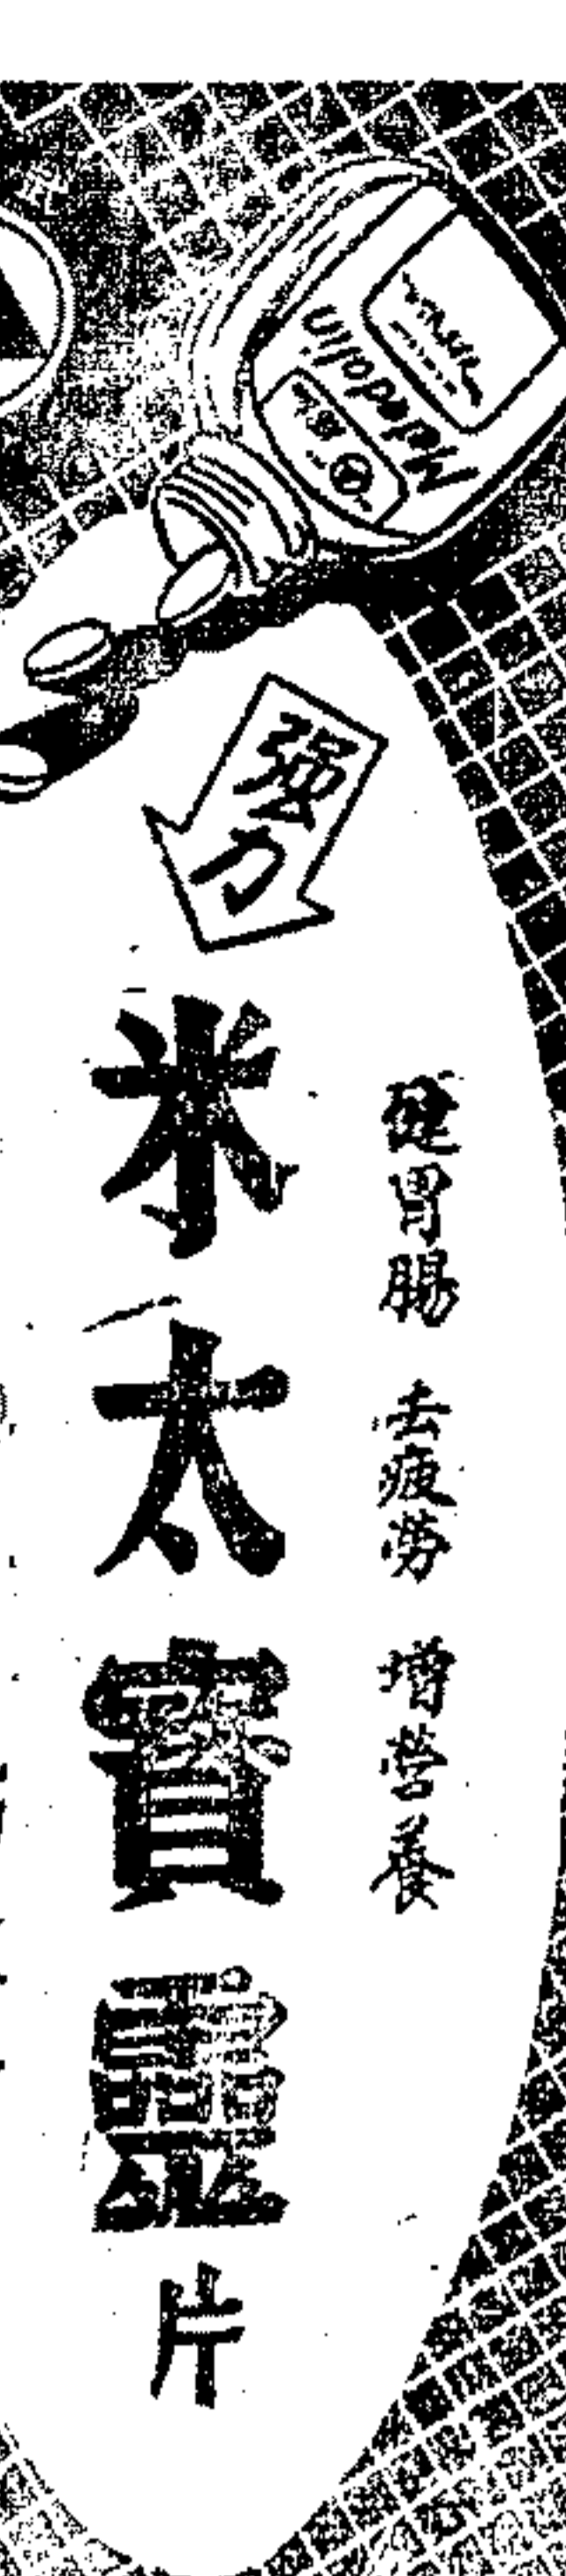 Metabolin
强力
健胃腸 去疲勞 增营養
米太寶靈片